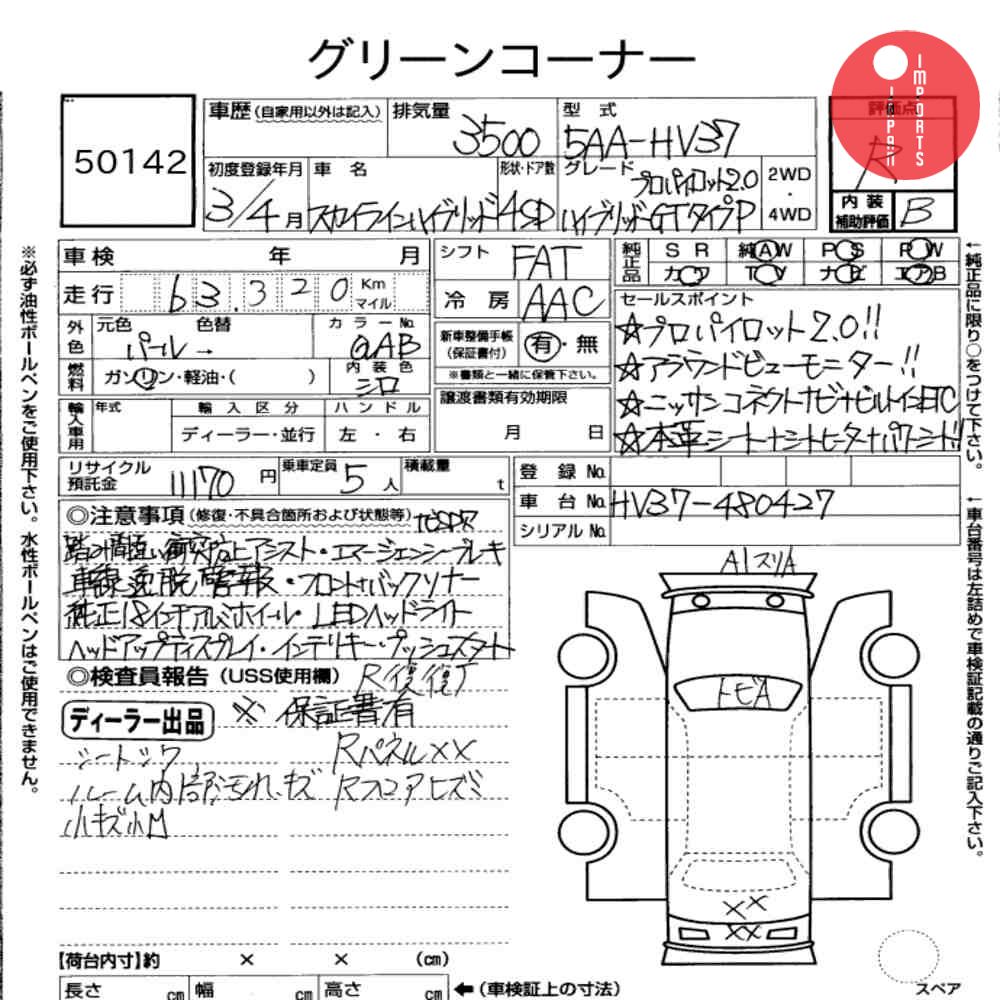 グリーンコーナー
JAPAN IMPORTS
50142
車歴(自家用以外は記入) 排気量 3500 型式 5AA-HV37
評価点 R
初度登録年月 3/4月 車名 スカイラインハイブリッド 形状・ドア数 4SD グレード プロパイロット2.0 ハイブリッドGTタイプP 2WD・4WD
内装補助評価 B
車検 年 月 シフト FAT
純正品 SR 純AW PS PW
カワ TV ナビ エアB
走行 63,320 Km マイル 冷房 AAC
セールスポイント
外色 元色 パール→ 色替 カラーNo. QAB
新車整備手帳(保証書付) 有・無
※書類と一緒に保管下さい。
☆プロパイロット2.0!!
☆アラウンドビューモニター!!
☆ニッサンコネクトナビ+ビルトインETC
☆本革シート+シートヒーター+パワーシート!!
燃料 ガソリン・軽油・( ) 内装色 シロ
輸入車用 年式 輸入区分 ディーラー・並行 ハンドル 左・右
譲渡書類有効期限 月 日
リサイクル預託金 11170円 乗車定員 5人 積載量 t
登録No.
車台No. HV37-480427
シリアルNo.
◎注意事項(修復・不具合箇所および状態等)
踏み間違い衝突防止アシスト・エマージェンシーブレーキ
車線逸脱警報・フロント+バックソナー
純正18インチアルミホイール・LEDヘッドライト
ヘッドアップディスプレイ・インテリキー・プッシュスタート
◎検査員報告(USS使用欄) R復復丁
ディーラー出品 ※保証書有
シートシワ RパネルXX
ルーム内部汚れ、キズ Rフロアヒズミ
小キズ小凹
A1スリA
トビA
XX
XX
【荷台内寸】約 × × (cm)
長さ cm 幅 cm 高さ cm
←(車検証上の寸法)
スペア
※必ず油性ボールペンをご使用下さい。水性ボールペンはご使用できません。
←純正品に限り○をつけて下さい。
←車台番号は左詰めで車検証記載の通りご記入下さい。